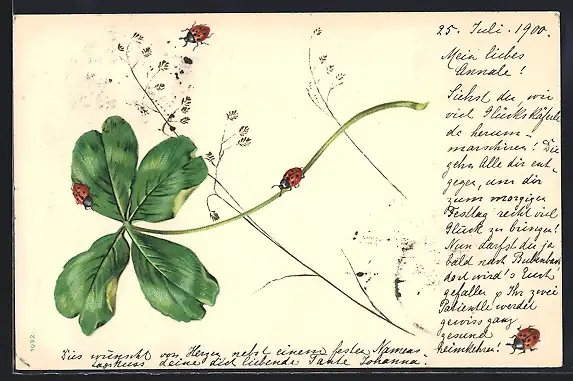 25. Juli. 1900.
Mein liebes
Annale!
Siehst du, wie
viel Glückskäferle
do herum-
marschiren! Die
gehn Alle dir ent-
gegen, um dir
zum morgigen
Festtag recht viel
Glück zu bringen!
Nun darfst du ja
bald nach
dort wird's Euch
gefallen & Ihr zwei
werdet
gewiss ganz
gesund
heimkehren!
Dies wünscht von Herzen nebst einem festen Namens-
tagskuss deine dich liebende Tante Johanna.
1092